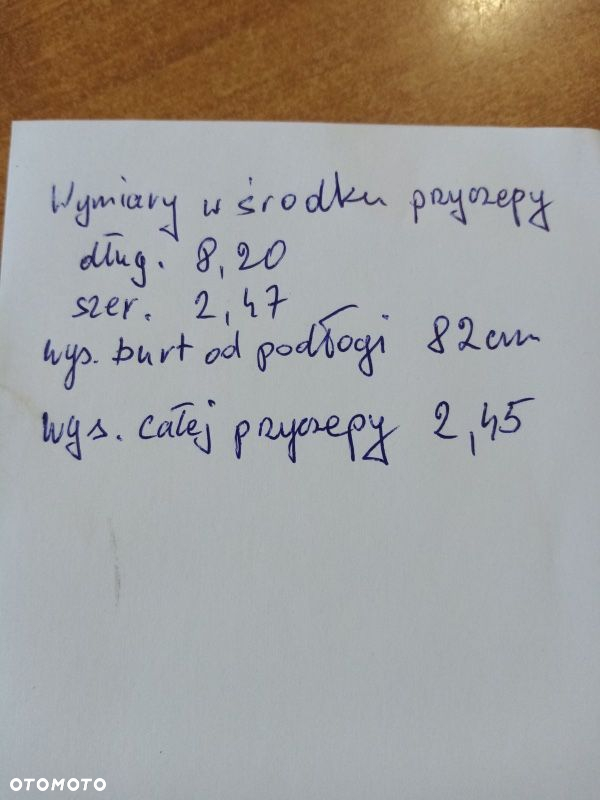 Wymiary w środku przyczepy
dług. 8,20
szer. 2,47
wys. burt od podłogi 82cm
wys. całej przyczepy 2,45
OTOMOTO